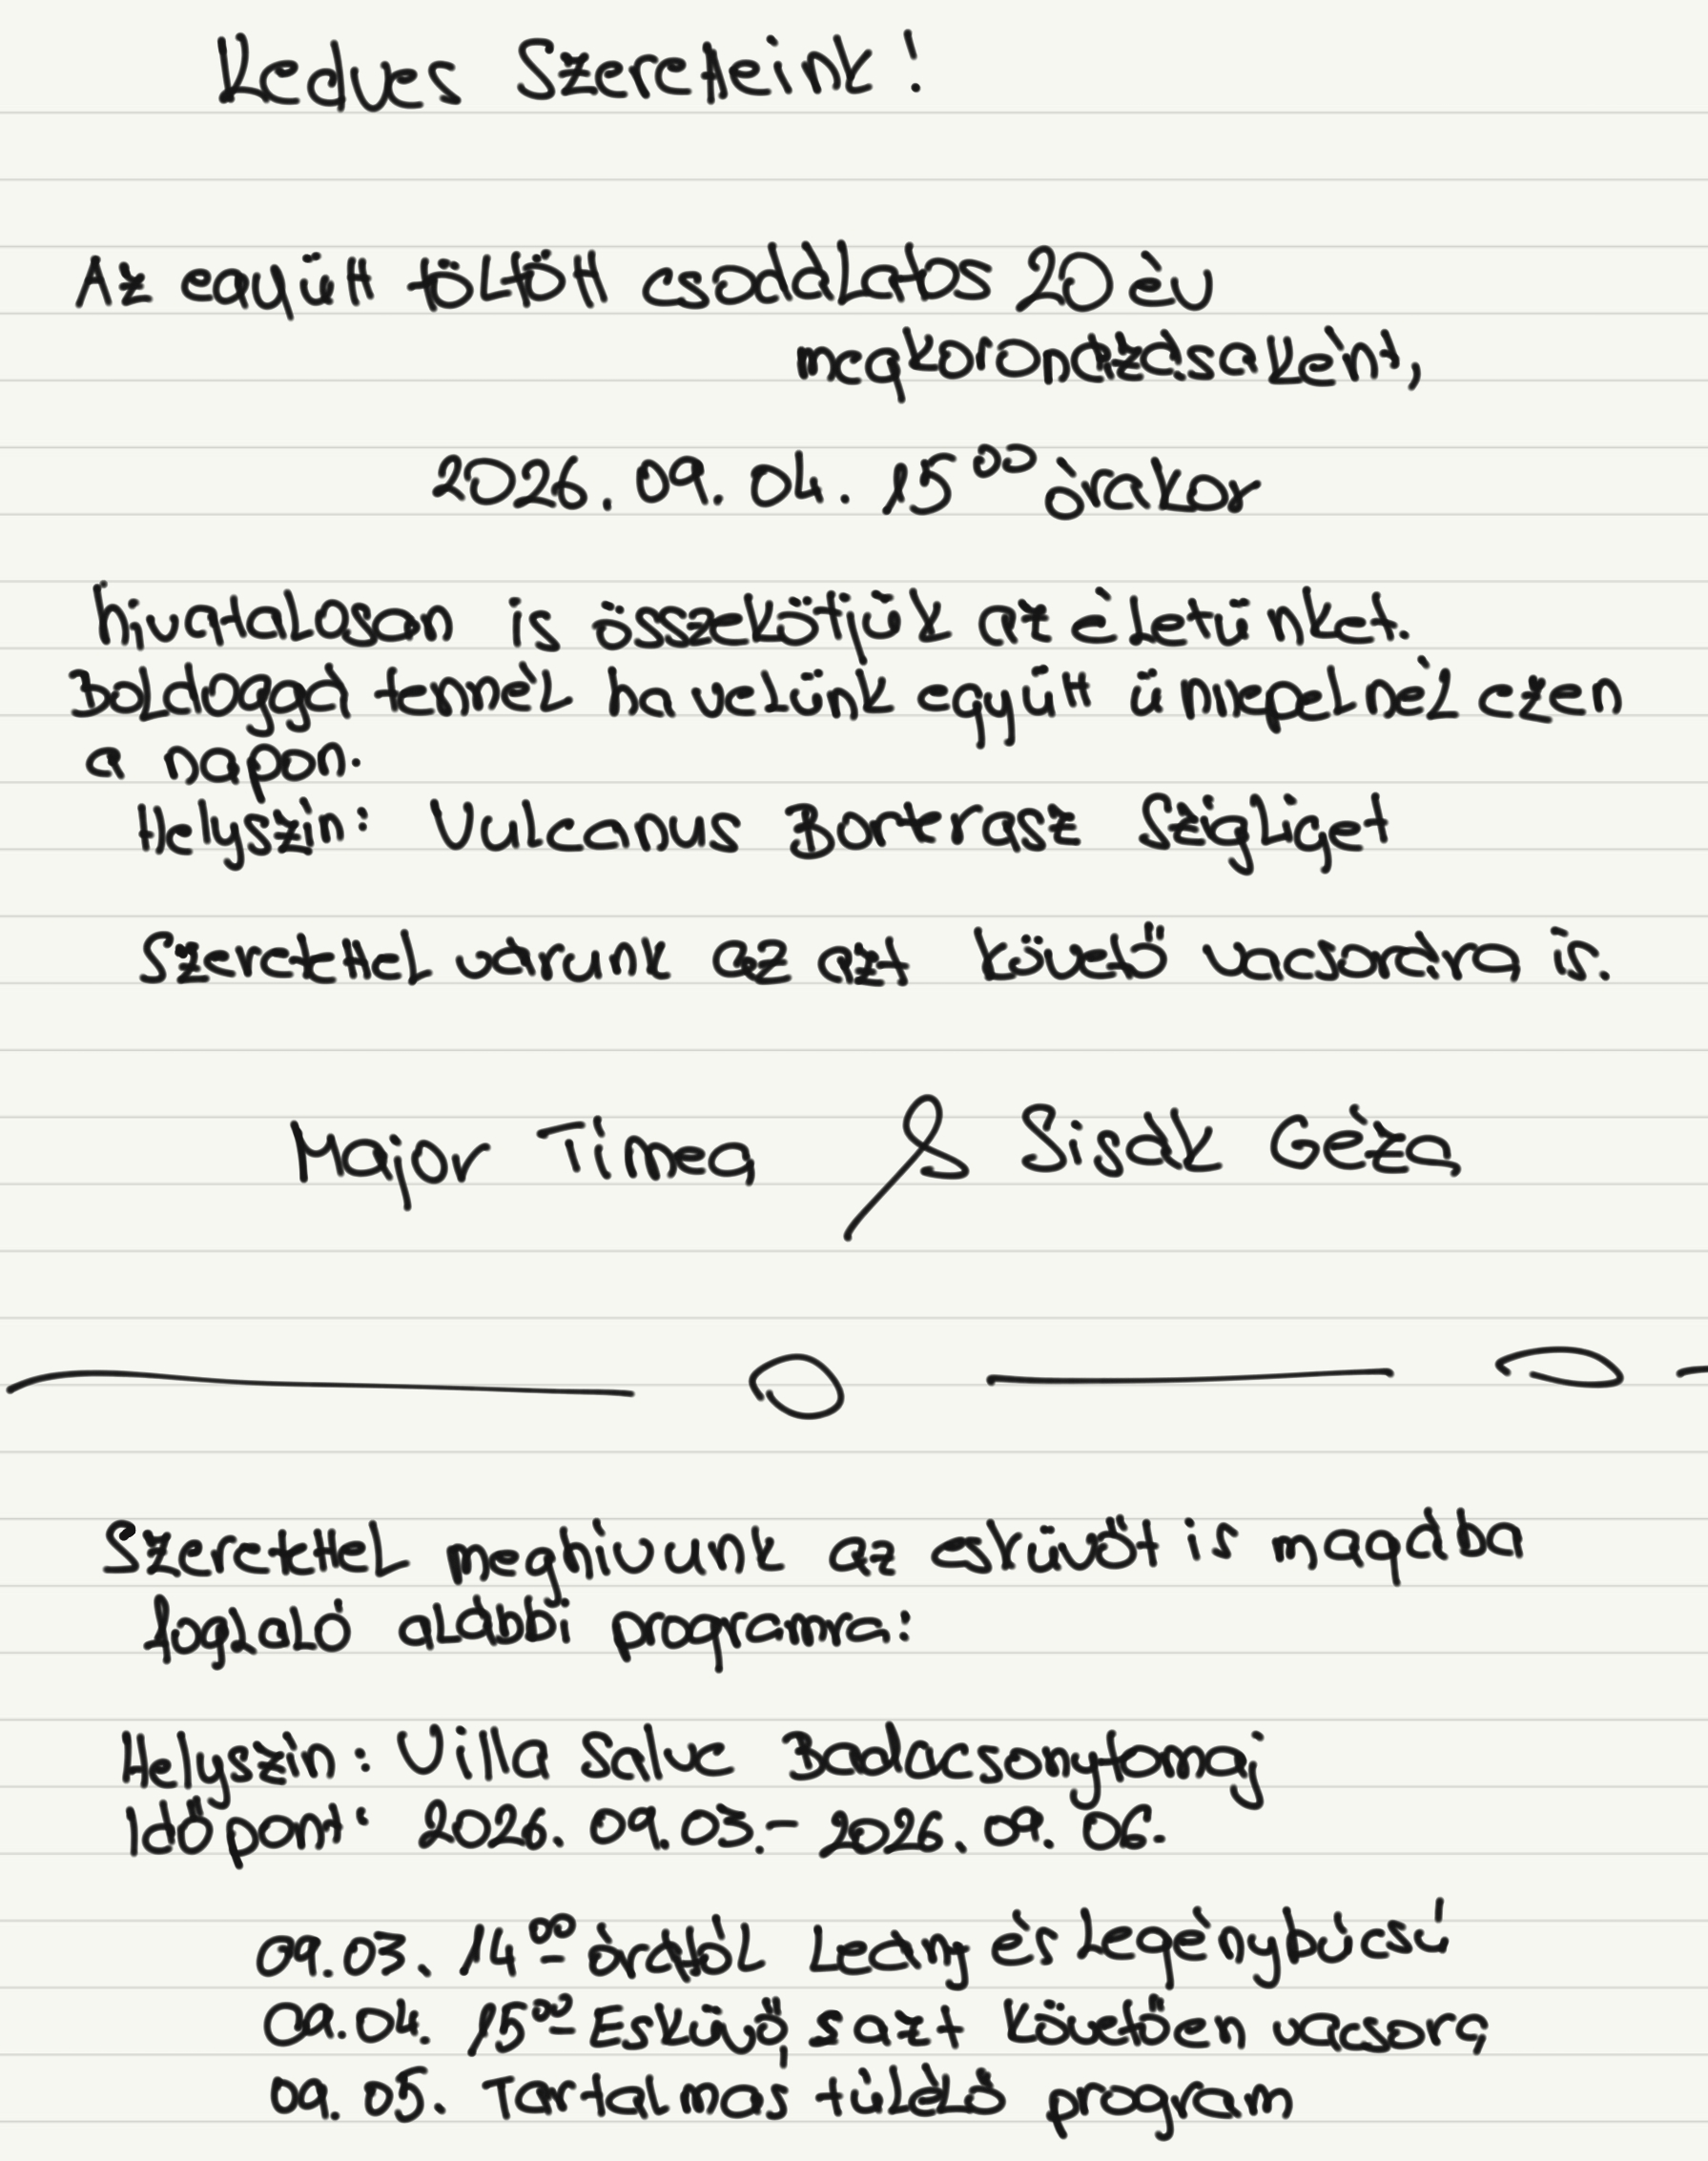 Kedves Szeretteink!
Az együtt töltött csodálatos 20 év
megkoronázásaként,
2026. 09. 04. 15⁰⁰ órakor
hivatalosan is összekötjük az életünket.
Boldoggá tennél ha velünk együtt ünnepelnél ezen
a napon.
Helyszín: Vulcanus Borterasz Szigliget
Szeretettel várunk az azt követő vacsorára is.
Major Tímea & Sisák Géza
Szeretettel meghívunk az esküvőt is magába
foglaló alábbi programra:
Helyszín: Villa Salve Badacsonytomaj
Időpont: 2026. 09. 03. - 2026. 09. 06.
09. 03. 14⁰⁰ órától Leány és Legénybúcsú
09. 04. 15⁰⁰ Esküvő, s azt követően vacsora
09. 05. Tartalmas túlélő program